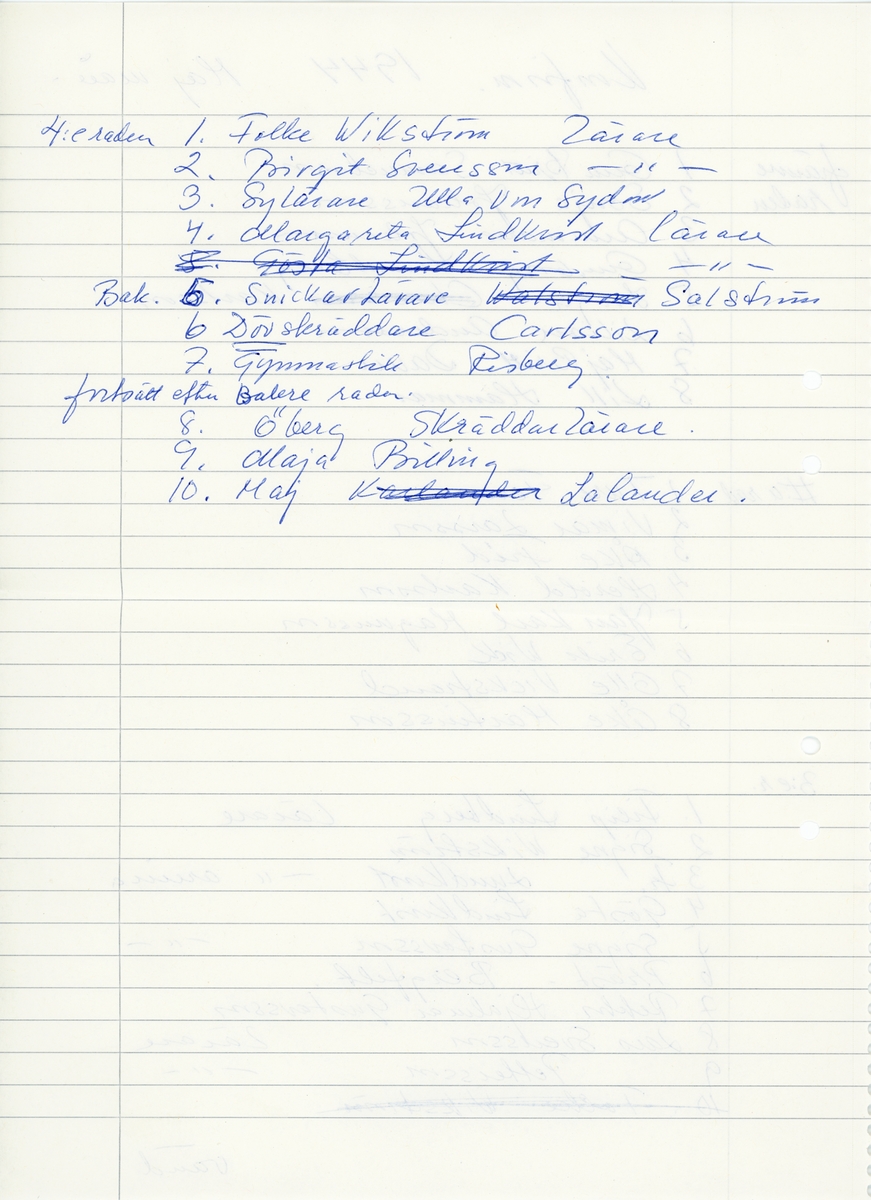 4:e raden 1. Folke Wikström Lärare
2. Birgit Svensson — " —
3. Sylärare Ulla von Sydow
4. Margareta Lindkvist lärare
5. Gösta Lindkvist — " —
Bak. 5. Snickarlärare Walström Salström
6 Dövskräddare Carlsson
7. Gymnastik Risberg
fortsätt efter Bakre raden.
8. Öberg Skräddarlärare.
9. Maja Billing
10. Maj Karlander Lalander.